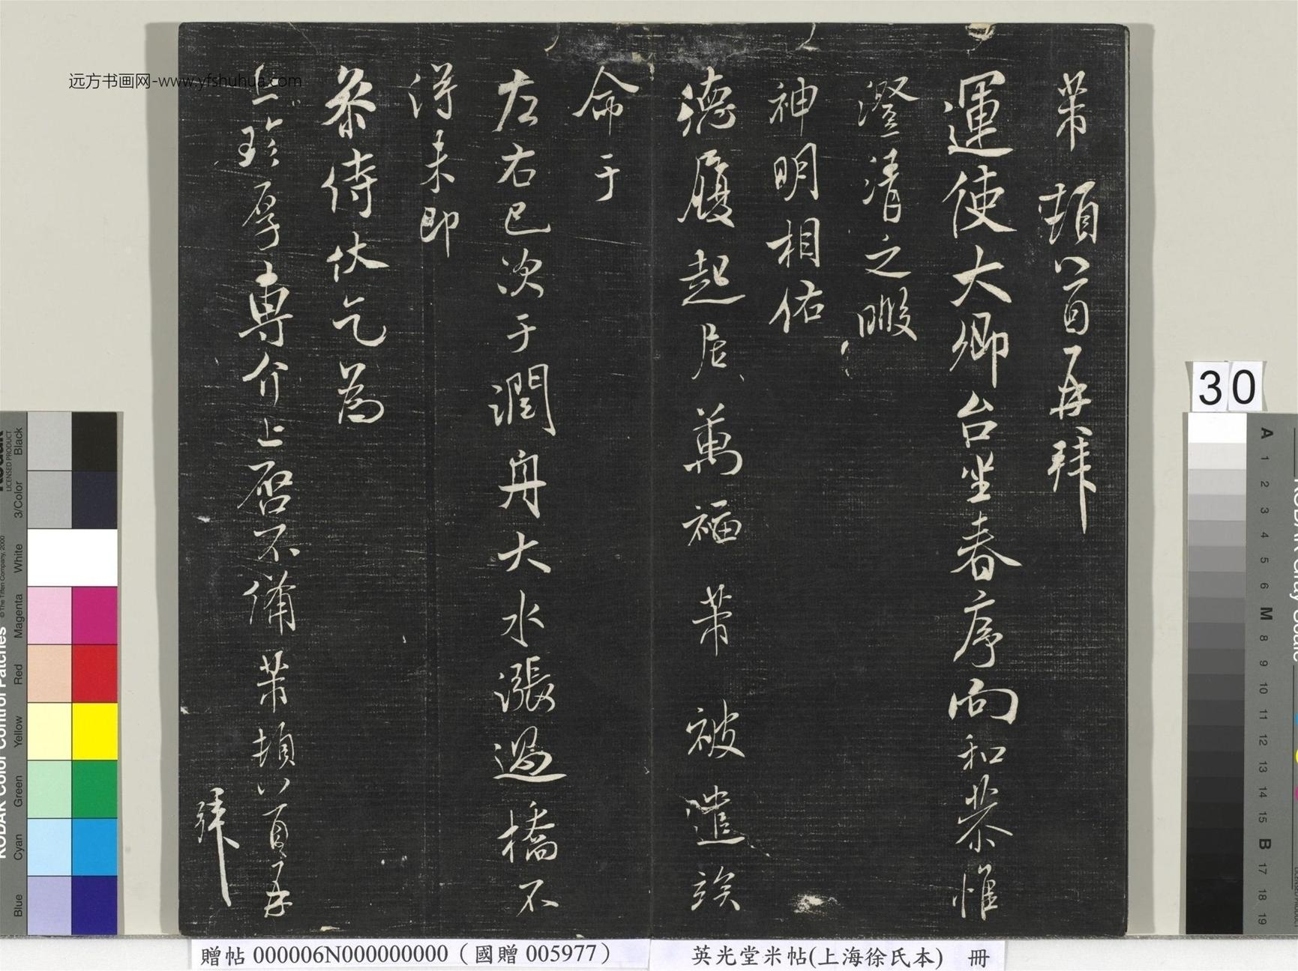 芾頓首再拜
運使大卿台坐春序向和恭惟
澄清之暇
神明相佑
德履起居萬福芾被遣誒
命于
左右已次于潤舟大水漲過橋不
得未即
參侍伏乞為
上珍厚專介上啓不備芾頓首再
拜
远方书画网-www.yfshuhua.com
30
贈帖 000006N000000000（國贈 005977）
英光堂米帖(上海徐氏本) 冊
KODAK Color Control Patches
LICENSED PRODUCT
© The Tiffen Company, 2000
Blue
Cyan
Green
Yellow
Red
Magenta
White
3/Color
Black
A 1 2 3 4 5 6 M 8 9 10 11 12 13 14 15 B 17 18 19